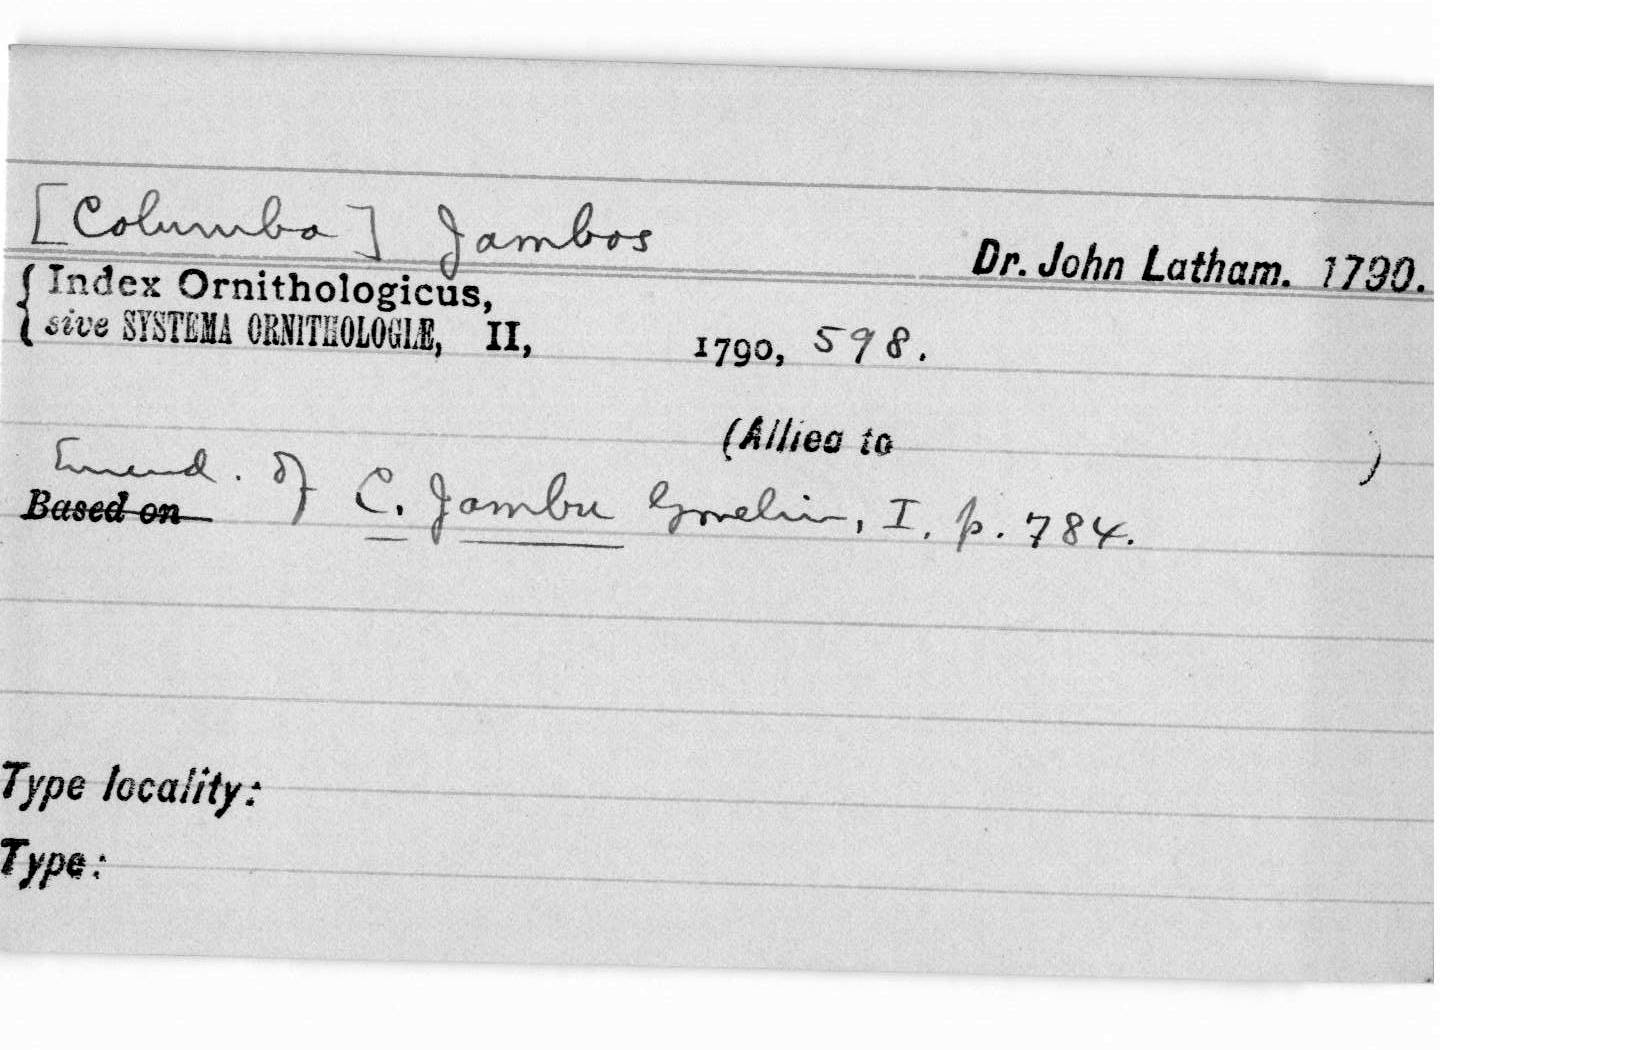 [Columba] Jambos
Dr. John Latham. 1790.
{ Index Ornithologicus,
sive SYSTEMA ORNITHOLOGIÆ, II, 1790, 598.
(Allied to )
Emend. of C. Jambu Gmelin, I, p. 784.
Based on
Type locality:
Type: